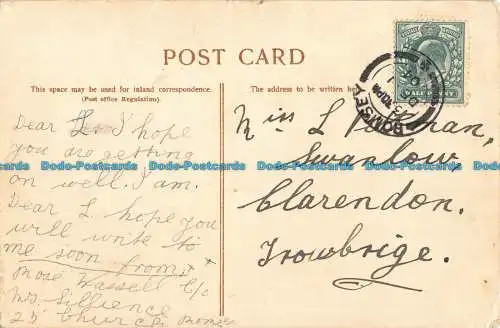 POST CARD
This space may be used for inland correspondence.
(Post office Regulation).
The address to be written here
HALF PENNY
ROMSEY
Dear L I hope
you are getting
on well. I am.
Dear L hope you
will write to
me soon from
Rose Wassell C/o
Mrs. Sillience
25 Church
Miss L
Swanlow
Clarendon.
Trowbrige.
Dodo-Postcards Dodo-Postcards Dodo-Postcards Dodo-Postcards Dodo-Postcards